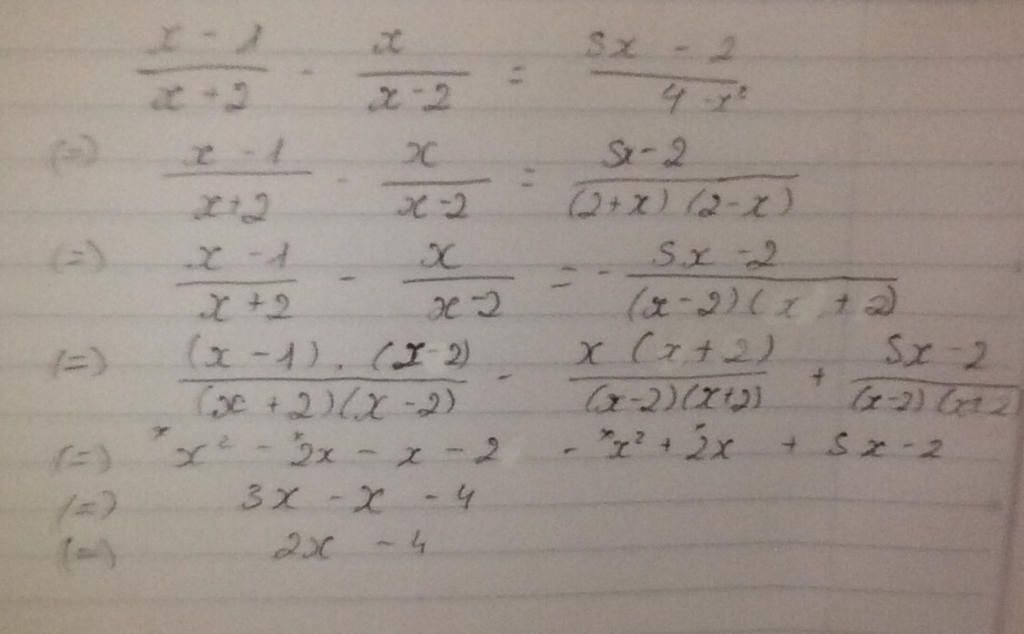 x - 1 / x + 2 - x / x - 2 = 5x - 2 / 4 - x²
(=) x - 1 / x + 2 - x / x - 2 = 5x - 2 / (2+x) (2-x)
(=) x - 1 / x + 2 - x / x - 2 = - 5x - 2 / (x - 2) (x + 2)
(=) (x - 1) . (x - 2) / (x + 2) (x - 2) - x (x + 2) / (x - 2) (x + 2) + 5x - 2 / (x - 2) (x + 2
(=) x² - 2x - x - 2 - x² + 2x + 5x - 2
(=) 3x - x - 4
(=) 2x - 4